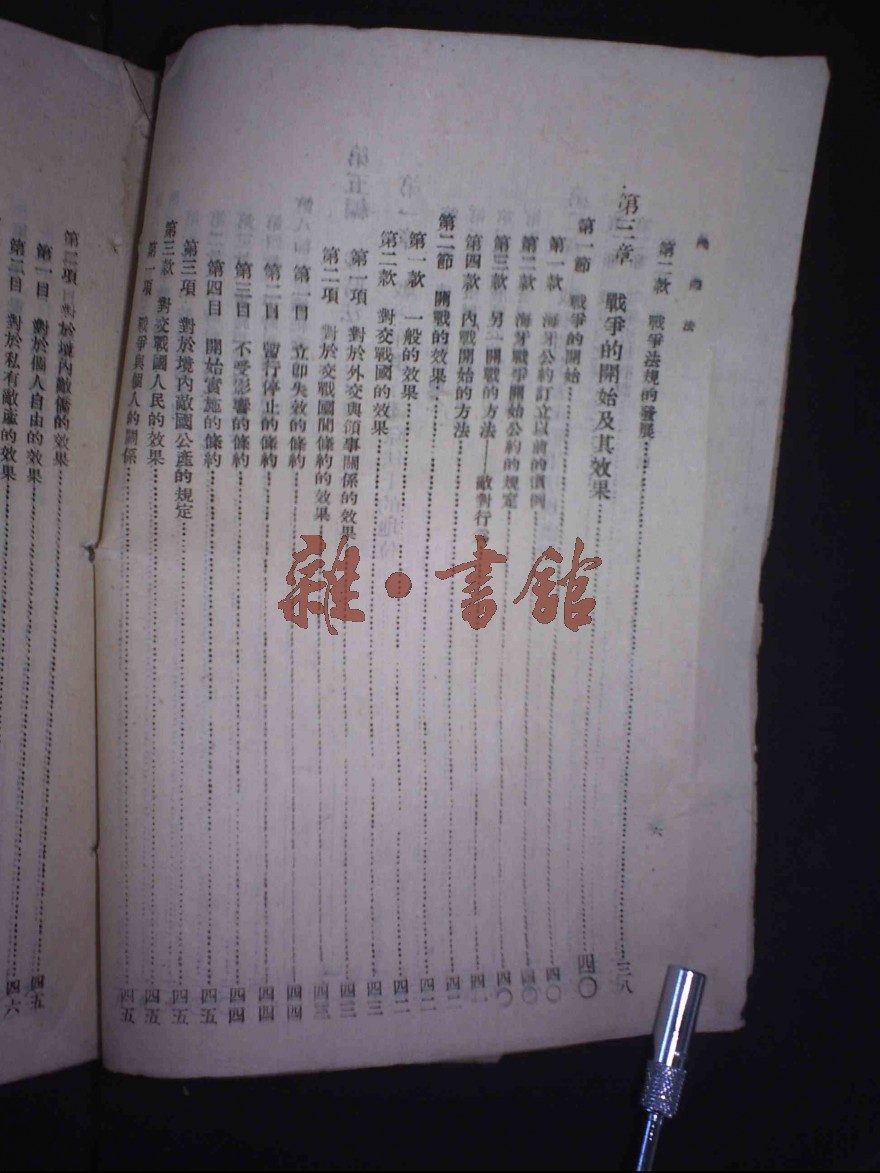 第二款 戰爭法規的發展 三八
第三章 戰爭的開始及其效果 四〇
第一節 戰爭的開始 四〇
第一款 海牙公約訂立以前的慣例 四〇
第二款 海牙戰爭開始公約的規定 四〇
第三款 另一開戰的方法——敵對行
第四款 內戰開始的方法
第二節 開戰的效果 四二
第一款 一般的效果 四二
第二款 對交戰國的效果 四二
第一項 對於外交與領事關係的效果
第二項 對於交戰國間條約的效果 四三
第一目 立即失效的條約 四四
第二目 暫行停止的條約 四四
第三目 不受影響的條約 四四
第四目 開始實施的條約 四五
第三項 對於境內敵國公產的規定 四五
第三款 對交戰國人民的效果 四五
第一項 戰爭與個人的關係 四五
六
第二項 對於境內敵僑的效果
第一目 對於個人自由的效果 四五
第二目 對於私有敵產的效果 四六
雜·書館